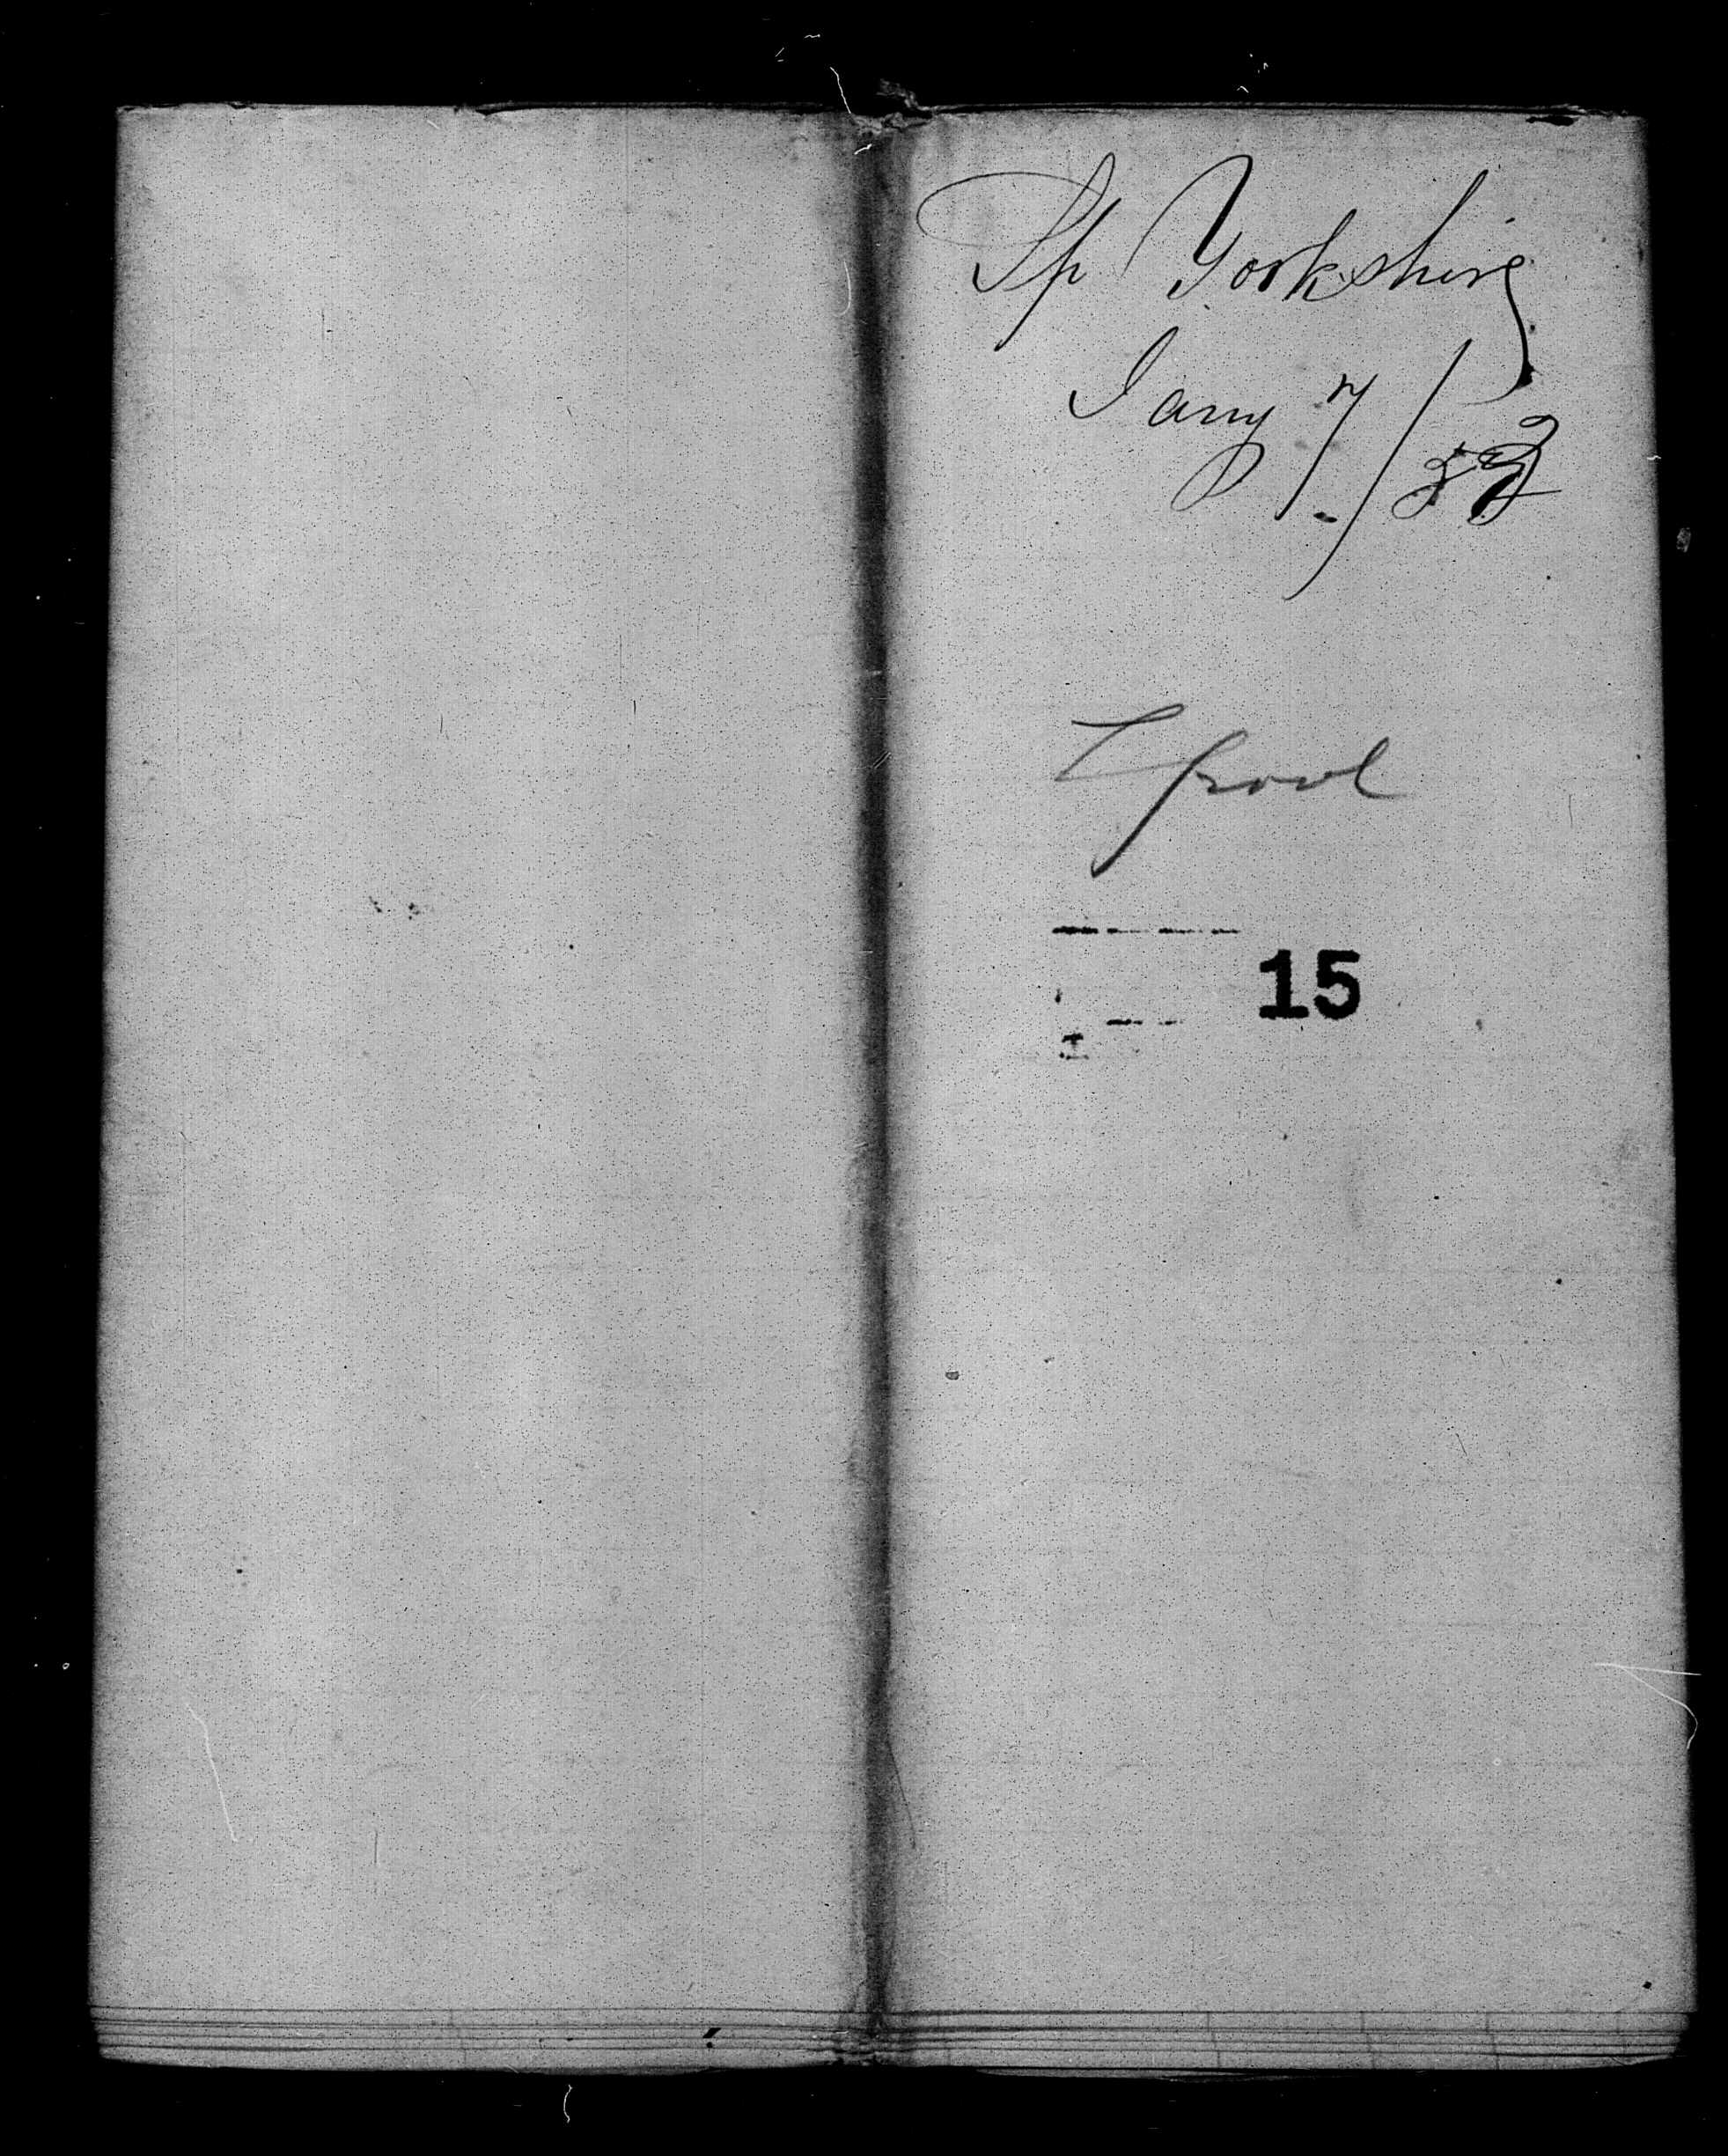 Sh Yorkshire
Jany 7/53
Lpool
15